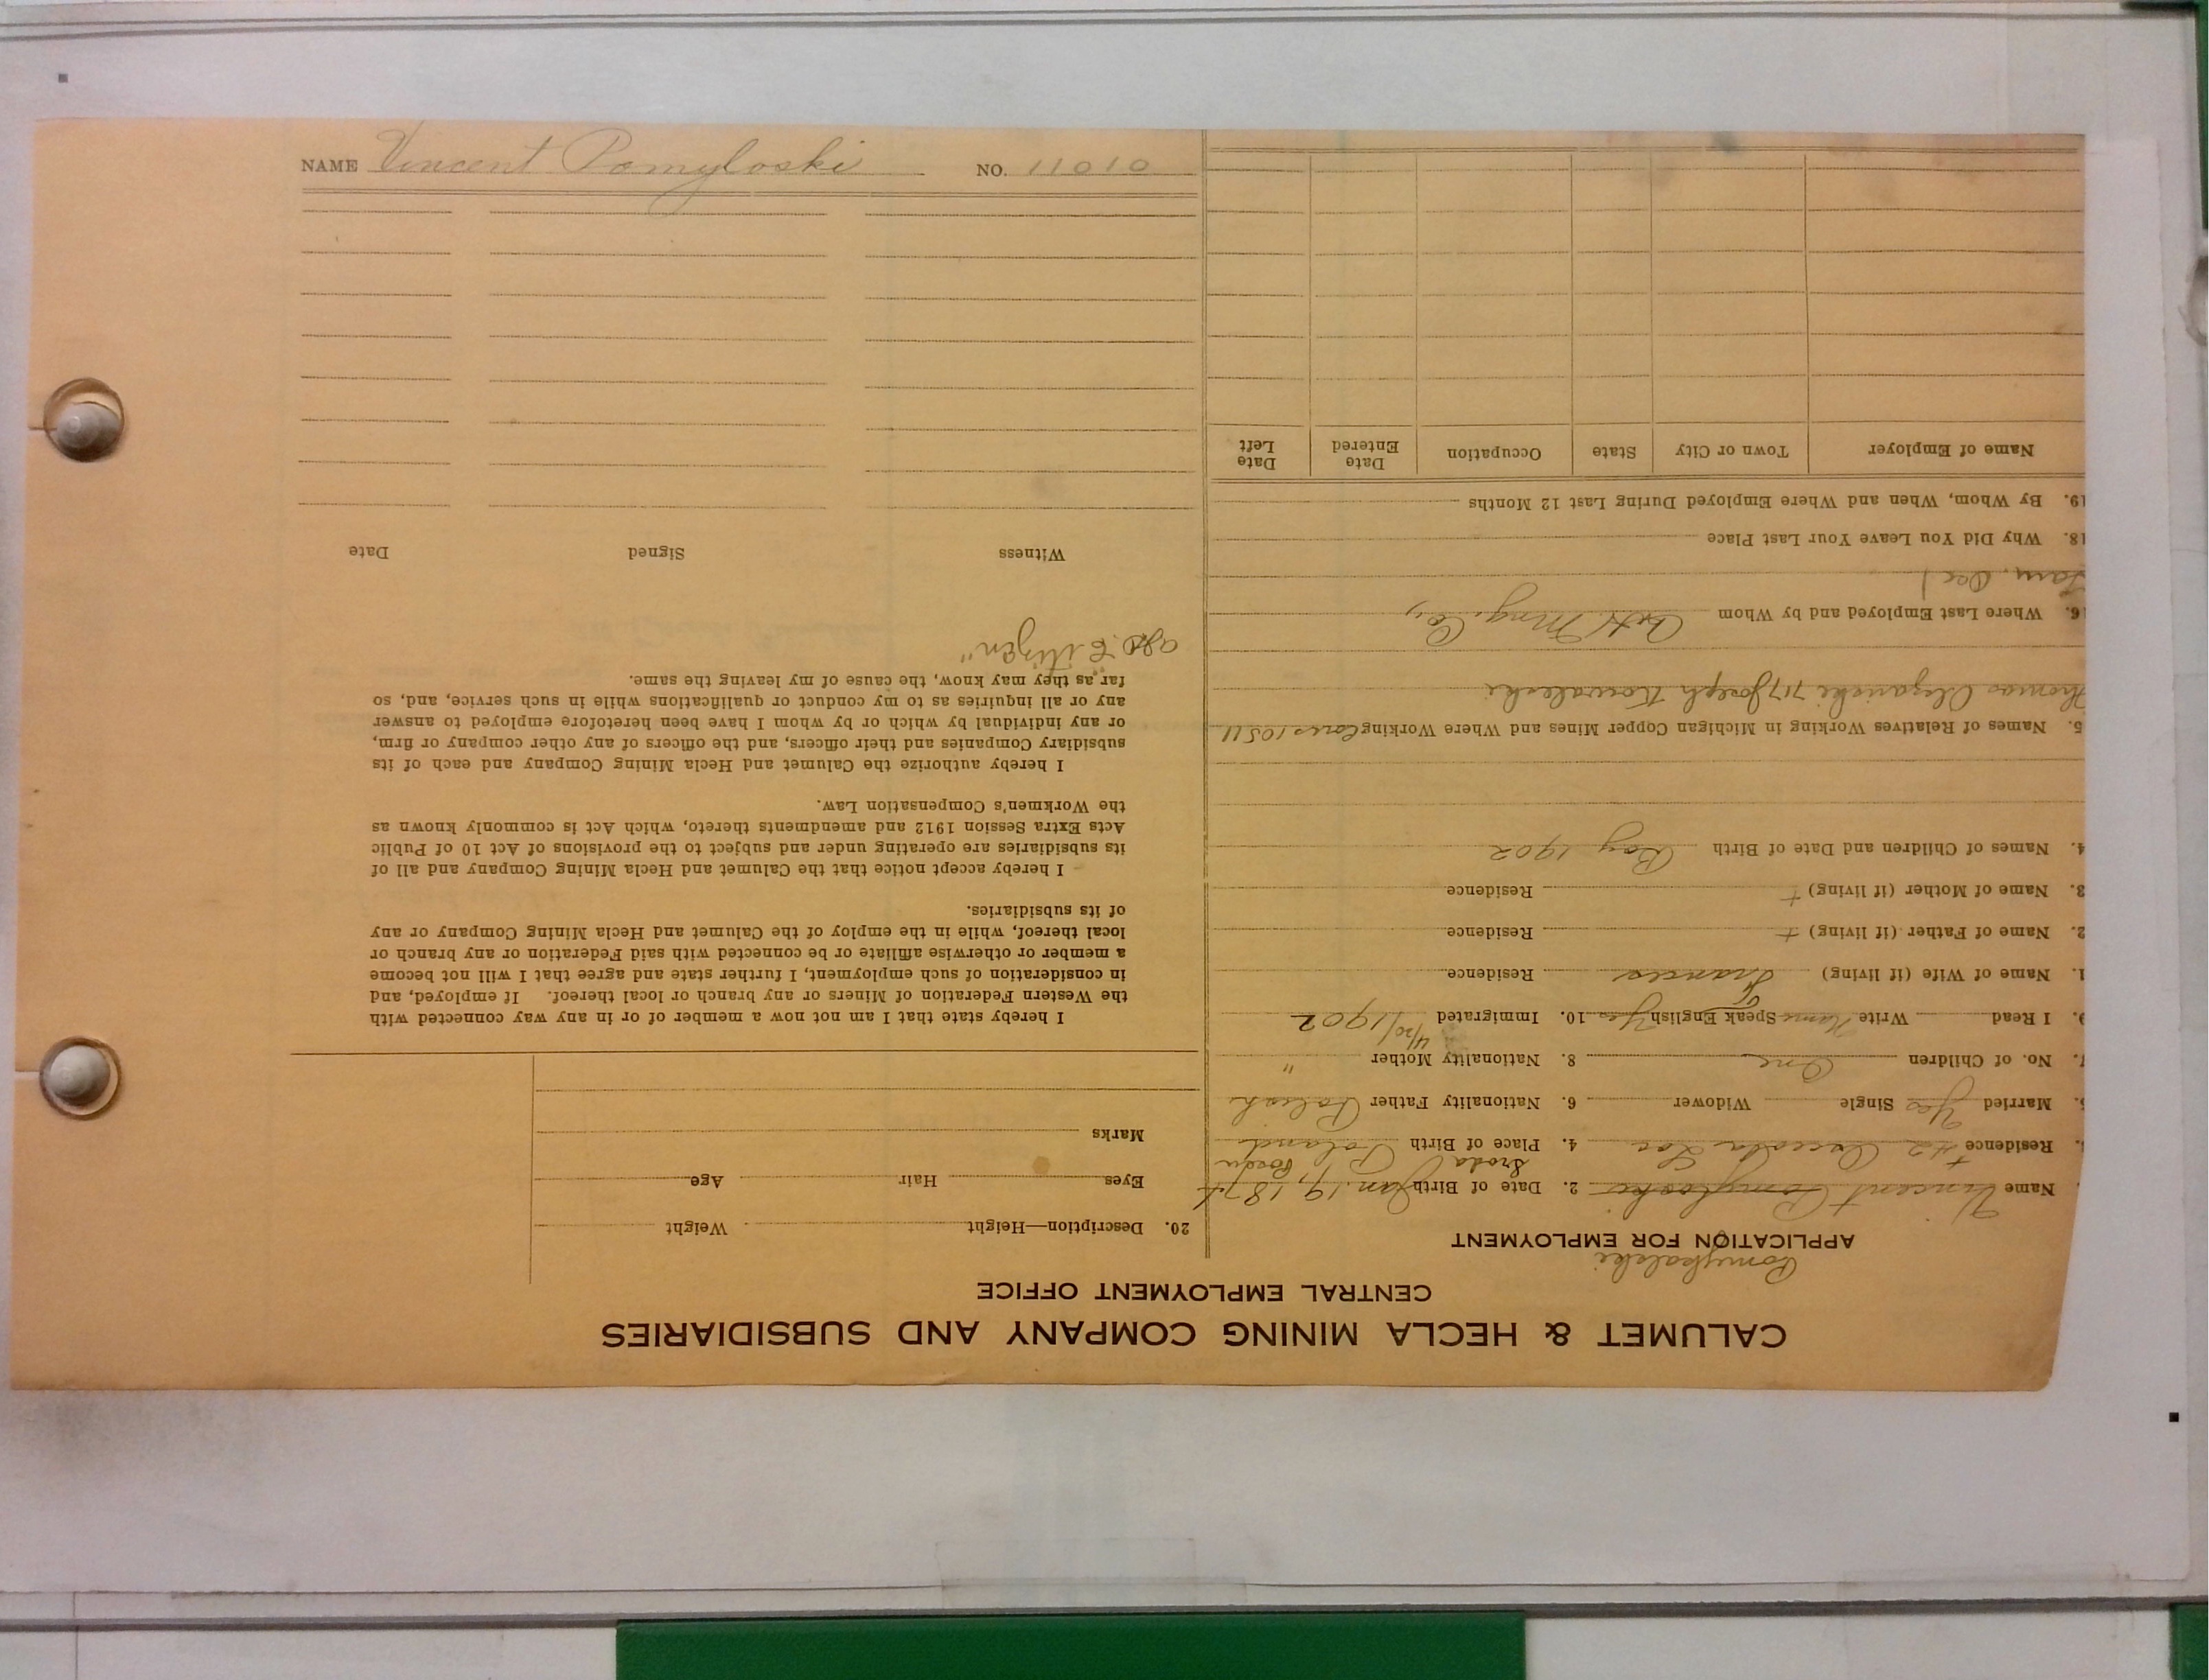 CALUMET & HECLA MINING COMPANY AND SUBSIDIARIES
CENTRAL EMPLOYMENT OFFICE
Pomykalski
APPLICATION FOR EMPLOYMENT
Name Vincent Pomyloski 2. Date of Birth Jan. 19, 187
Sroda Posen
Residence #2 Osceola Loc 4. Place of Birth Poland
5. Married Yes Single Widower 6. Nationality Father Polish
7. No. of Children One 8. Nationality Mother "
4/20/1902
9. I Read Write Name Speak English Yes 10. Immigrated
1. Name of Wife (if living) Frances Residence
2. Name of Father (if living) + Residence
3. Name of Mother (if living) + Residence
4. Names of Children and Date of Birth Boy 1902
5. Names of Relatives Working in Michigan Copper Mines and Where Working 10511
Thomas 717 Joseph Kowaleski
6. Where Last Employed and by Whom C&H Mng. Co,
Tam. Occ)
18. Why Did You Leave Your Last Place
19. By Whom, When and Where Employed During Last 12 Months
Name of Employer Town or City State Occupation Date Entered Date Left
20. Description—Height Weight
Eyes Hair Age
Marks
I hereby state that I am not now a member of or in any way connected with
the Western Federation of Miners or any branch or local thereof. If employed, and
in consideration of such employment, I further state and agree that I will not become
a member or otherwise affiliate or be connected with said Federation or any branch or
local thereof, while in the employ of the Calumet and Hecla Mining Company or any
of its subsidiaries.
I hereby accept notice that the Calumet and Hecla Mining Company and all of
its subsidiaries are operating under and subject to the provisions of Act 10 of Public
Acts Extra Session 1912 and amendments thereto, which Act is commonly known as
the Workmen's Compensation Law.
I hereby authorize the Calumet and Hecla Mining Company and each of its
subsidiary Companies and their officers, and the officers of any other company or firm,
or any individual by which or by whom I have been heretofore employed to answer
any or all inquiries as to my conduct or qualifications while in such service, and, so
far as they may know, the cause of my leaving the same.
"Citizen"
Witness Signed Date
NAME Vincent Pomyloski NO. 11010